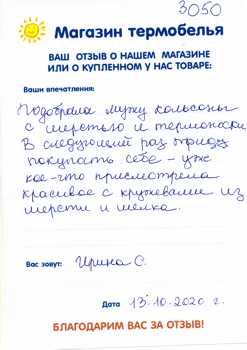 3050
Магазин термобелья
ВАШ ОТЗЫВ О НАШЕМ МАГАЗИНЕ
ИЛИ О КУПЛЕННОМ У НАС ТОВАРЕ:
Ваши впечатления:
Подобрала мужу кальсоны
с шерстью и термоноски.
В следующий раз приду
покупать себе - уже
кое-что присмотрела
красивое с кружевами из
шерсти и шелка.
Вас зовут: Ирина С.
Дата 13.10.2020 г.
БЛАГОДАРИМ ВАС ЗА ОТЗЫВ!